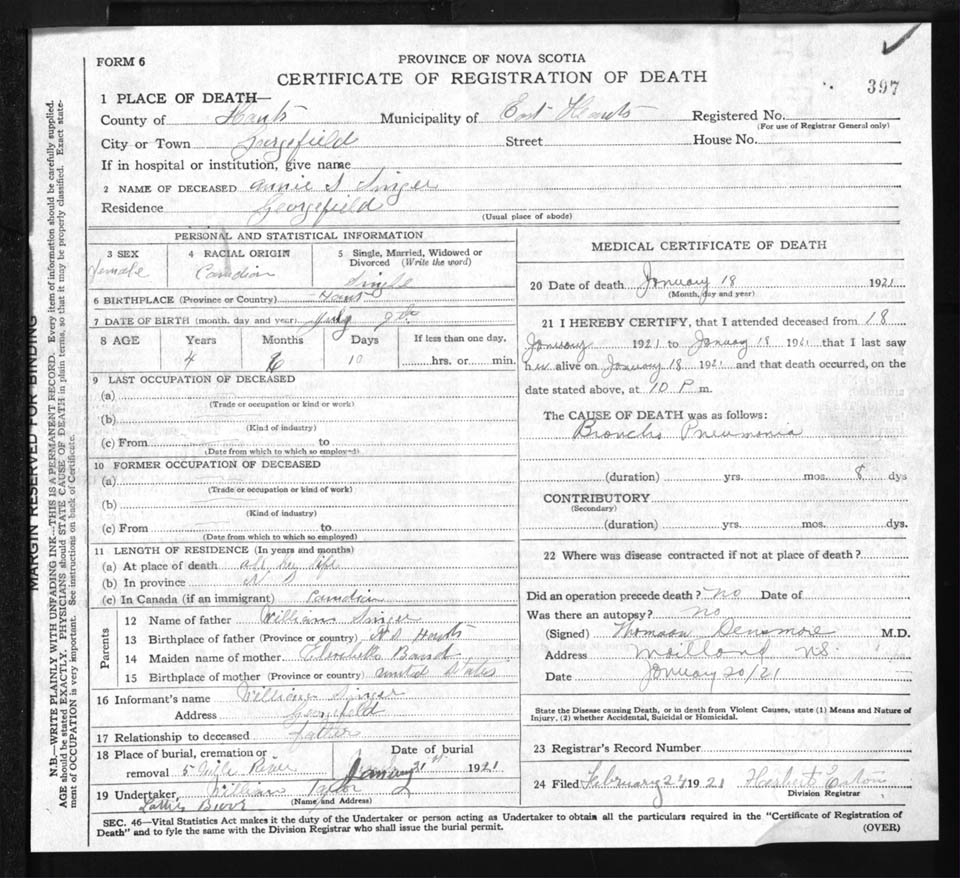 FORM 6
PROVINCE OF NOVA SCOTIA
CERTIFICATE OF REGISTRATION OF DEATH
397
1 PLACE OF DEATH—
County of Hants Municipality of East Hants Registered No.
(For use of Registrar General only)
City or Town Georgefield Street House No.
If in hospital or institution, give name
2 NAME OF DECEASED Annie S Singer
Residence Georgefield
(Usual place of abode)
PERSONAL AND STATISTICAL INFORMATION
3 SEX 4 RACIAL ORIGIN 5 Single, Married, Widowed or Divorced (Write the word)
Female Canadian Single
6 BIRTHPLACE (Province or Country) Hants
7 DATE OF BIRTH (month, day and year) July 9th
8 AGE Years Months Days If less than one day,
4 6 10 hrs. or min.
9 LAST OCCUPATION OF DECEASED
(a)
(Trade or occupation or kind or work)
(b)
(Kind of industry)
(c) From to
(Date from which to which so employed)
10 FORMER OCCUPATION OF DECEASED
(a)
(Trade or occupation or kind of work)
(b)
(Kind of industry)
(c) From to
(Date from which to which so employed)
11 LENGTH OF RESIDENCE (In years and months)
(a) At place of death all her life
(b) In province N S
(c) In Canada (if an immigrant) Canadian
Parents
12 Name of father William Singer
13 Birthplace of father (Province or country) N.S. Hants
14 Maiden name of mother
15 Birthplace of mother (Province or country) United States
16 Informant's name William Singer
Address Georgefield
17 Relationship to deceased father
18 Place of burial, cremation or Date of burial
removal 5 Mile River January 21st 1921
19 Undertaker, William Taylor
(Name and Address)
MEDICAL CERTIFICATE OF DEATH
20 Date of death January 18 1921
(Month, day and year)
21 I HEREBY CERTIFY, that I attended deceased from 18
January 1921 to January 18 1921 that I last saw
her alive on January 18 1921 and that death occurred, on the
date stated above, at 10 P m.
The CAUSE OF DEATH was as follows:
Broncho Pneumonia
(duration) yrs. mos. 8 dys
CONTRIBUTORY
(Secondary)
(duration) yrs. mos. dys.
22 Where was disease contracted if not at place of death?
Did an operation precede death? no Date of
Was there an autopsy? no
(Signed) Thomson Densmore M.D.
Address Maitland N.S.
Date January 20/21
State the Disease causing Death, or in death from Violent Causes, state (1) Means and Nature of
Injury, (2) whether Accidental, Suicidal or Homicidal.
23 Registrar's Record Number
24 Filed February 24 1921 Herbert Eaton
Division Registrar
SEC. 46—Vital Statistics Act makes it the duty of the Undertaker or person acting as Undertaker to obtain all the particulars required in the "Certificate of Registration of
Death" and to fyle the same with the Division Registrar who shall issue the burial permit.
(OVER)
MARGIN RESERVED FOR BINDING
N.B.—WRITE PLAINLY WITH UNFADING INK—THIS IS A PERMANENT RECORD. Every item of information should be carefully supplied.
AGE should be stated EXACTLY. PHYSICIANS should STATE CAUSE OF DEATH in plain terms, so that it may be properly classified. Exact state-
ment of OCCUPATION is very important. See instructions on back of Certificate.